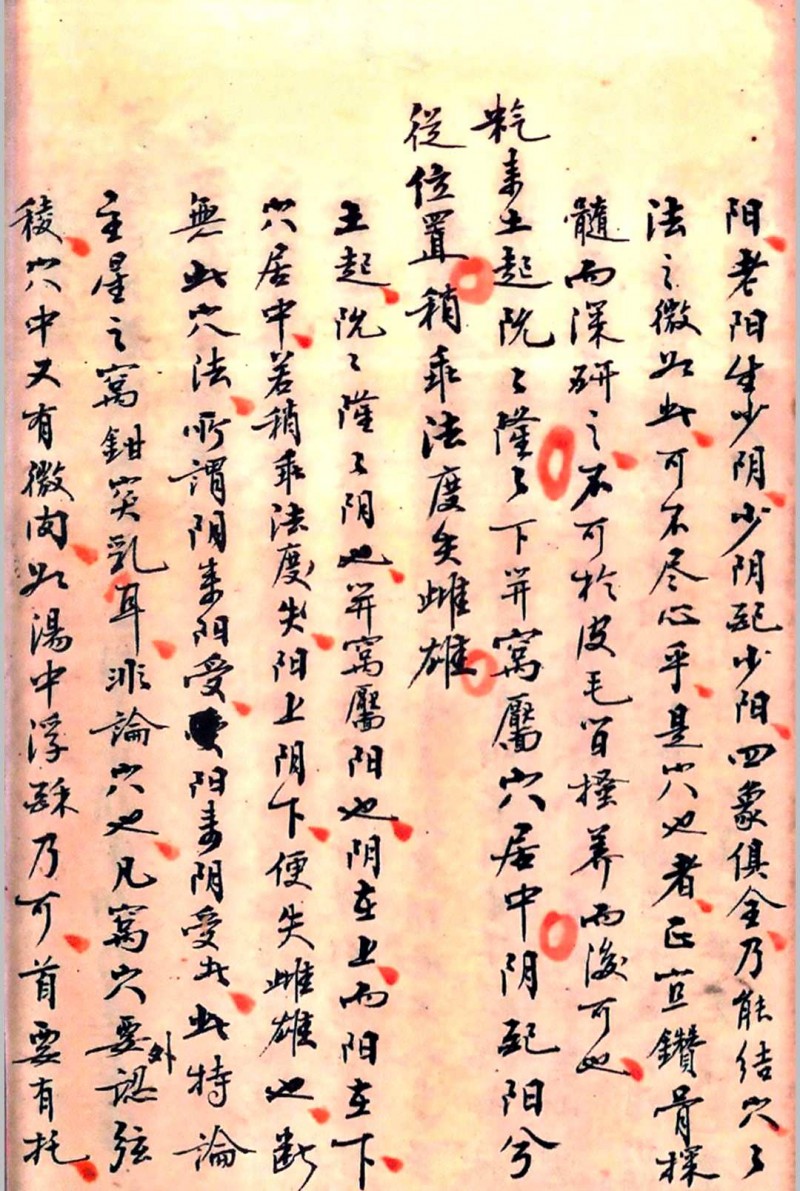 阳老阳生少阴少阴配少阳四象俱全乃能结穴々
法之微如此可不尽心乎是穴也者正宜鑽骨探
髓而深研之不可於皮毛皆搔养而後可也
粇来土起阮々隆々下开窝靥穴居中阴配阳兮
從位置稍乖法度失雌雄
土起阮々隆々阴也开窝靥阳也阴在上而阳在下
穴居中若稍乖法度失阳上阴下便失雌雄也断
無此穴法所谓阴来阳受阳来阴受者此特論
主星之窝鉗突乳耳非論穴也凡窝穴要外認弦
稜穴中又有微肉如湯中浮酥乃可首要有托